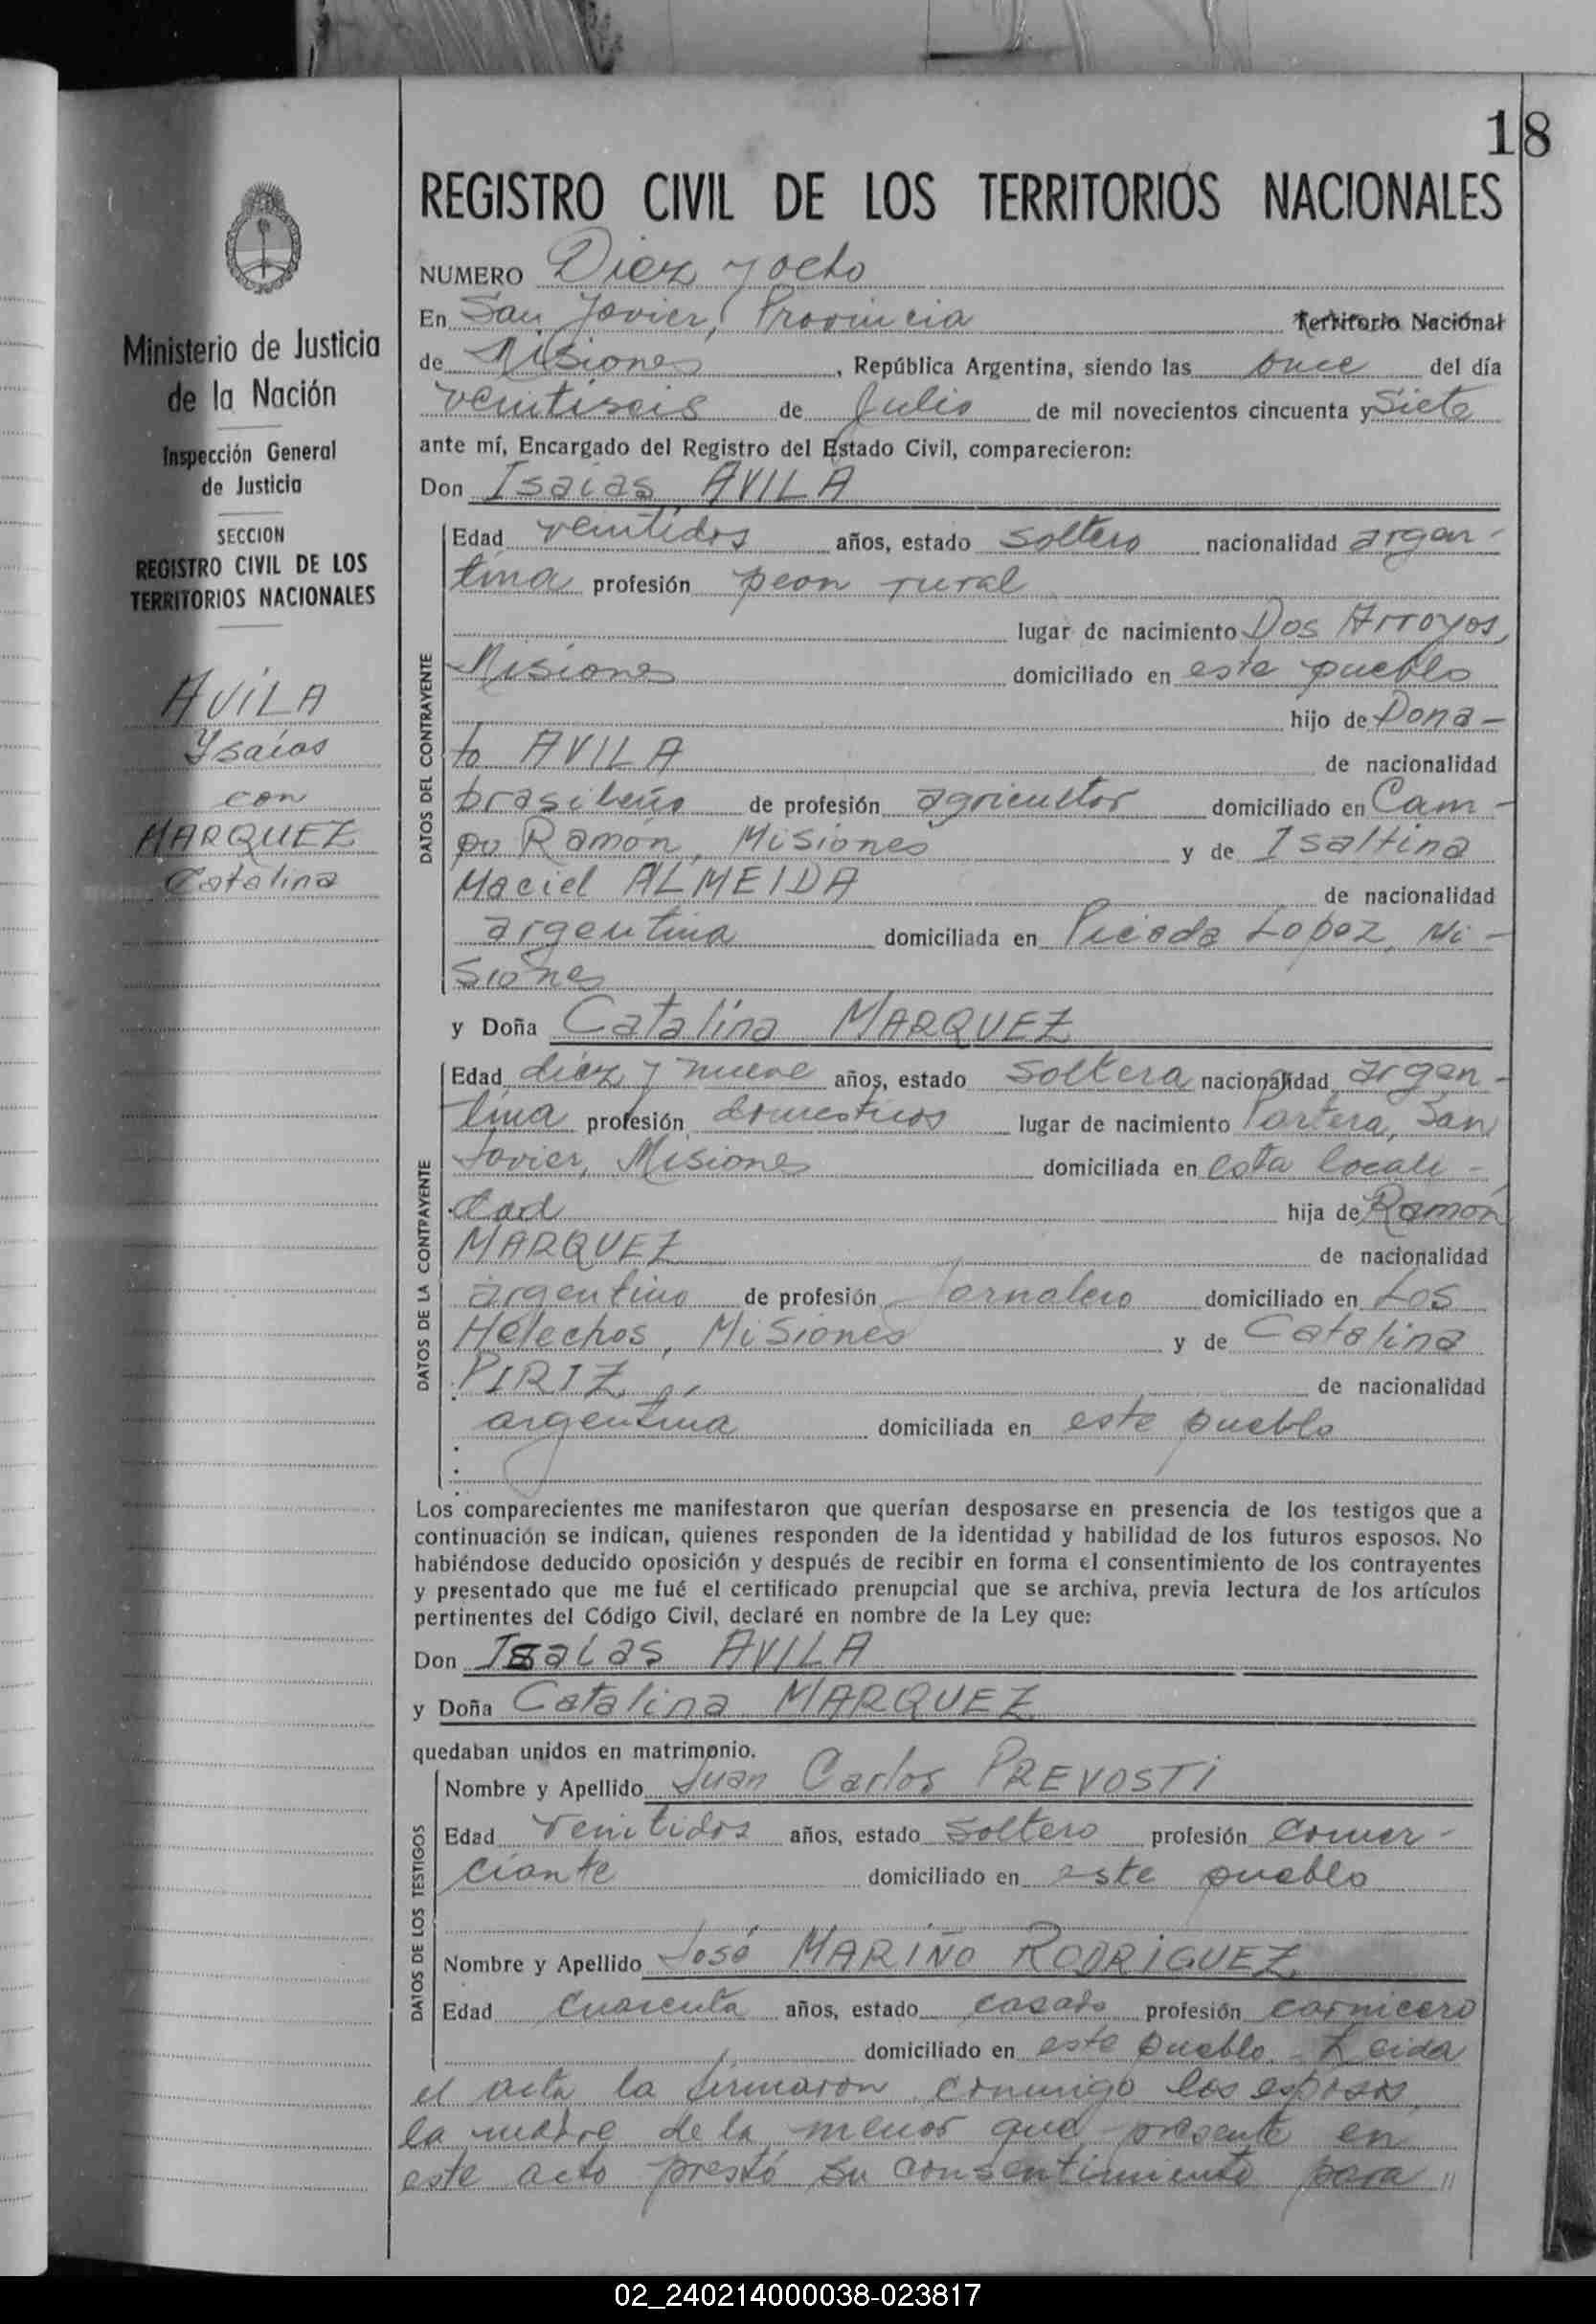 18
REGISTRO CIVIL DE LOS TERRITORIOS NACIONALES
Ministerio de Justicia
de la Nación
Inspección General
de Justicia
SECCION
REGISTRO CIVIL DE LOS
TERRITORIOS NACIONALES
AVILA
Ysaías
con
MARQUEZ
Catalina
NUMERO Diez y ocho
En San Javier, Provincia Territorio Nacional
de Misiones, República Argentina, siendo las once del día
veintiseis de Julio de mil novecientos cincuenta y Siete
ante mí, Encargado del Registro del Estado Civil, comparecieron:
Don Isaías AVILA
DATOS DEL CONTRAYENTE
Edad veintidos años, estado soltero nacionalidad argen-
tina profesión peon rural
lugar de nacimiento Dos Arroyos,
Misiones domiciliado en este pueblo
hijo de Dona-
to AVILA de nacionalidad
brasileño de profesión agricultor domiciliado en Cam-
po Ramón, Misiones y de Isaltina
Maciel ALMEIDA de nacionalidad
argentina domiciliada en Picada Lopez, Mi-
siones
y Doña Catalina MARQUEZ
DATOS DE LA CONTRAYENTE
Edad diez y nueve años, estado soltera nacionalidad argen-
tina profesión domesticos lugar de nacimiento Portera, San
Javier, Misiones domiciliada en esta locali-
dad hija de Ramón
MARQUEZ de nacionalidad
argentino de profesión Jornalero domiciliado en Los
Helechos, Misiones y de Catalina
PIRIZ de nacionalidad
argentina domiciliada en este pueblo
Los comparecientes me manifestaron que querían desposarse en presencia de los testigos que a
continuación se indican, quienes responden de la identidad y habilidad de los futuros esposos. No
habiéndose deducido oposición y después de recibir en forma el consentimiento de los contrayentes
y presentado que me fué el certificado prenupcial que se archiva, previa lectura de los artículos
pertinentes del Código Civil, declaré en nombre de la Ley que:
Don Isaias AVILA
y Doña Catalina MARQUEZ
quedaban unidos en matrimonio.
DATOS DE LOS TESTIGOS
Nombre y Apellido Juan Carlos PREVOSTI
Edad veintidos años, estado soltero profesión comer-
ciante domiciliado en este pueblo
Nombre y Apellido José MARIÑO RODRIGUEZ
Edad cuarenta años, estado casado profesión carnicero
domiciliado en este pueblo.- Leida
el acta la firmaron conmigo los esposos,
la madre de la menor que presente en
este acto prestó su consentimiento para "
02_240214000038-023817